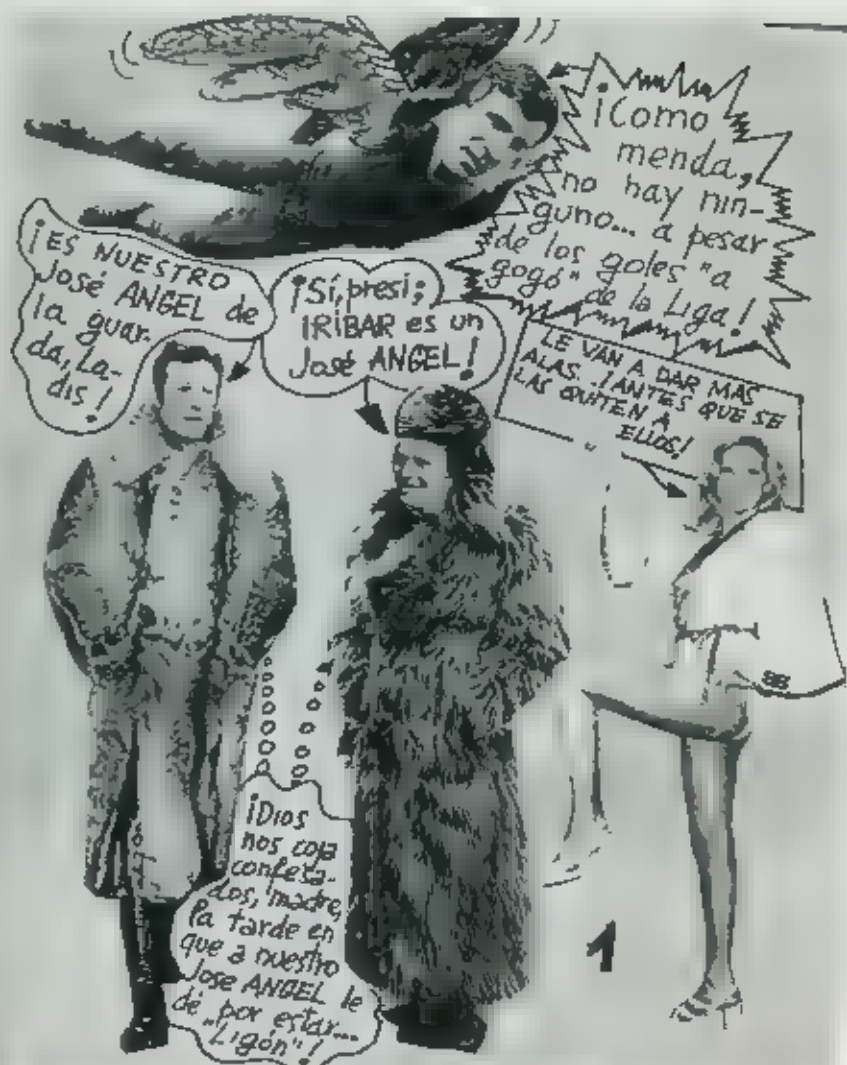 ¡Como
menda,
no hay nin-
guno... a pesar
de los goles "a
gogó" de la Liga!
¡ES NUESTRO
José ANGEL de
la guar-
da, La-
dis!
¡Sí, presi;
IRIBAR es un
José ANGEL!
LE VAN A DAR MAS
ALAS... ¡ANTES QUE SE
LAS QUITEN A
ELLOS!
¡Dios
nos coja
confesa-
dos, madre,
la tarde en
que a nuestro
José ANGEL le
dé por estar...
"Ligón"!
1